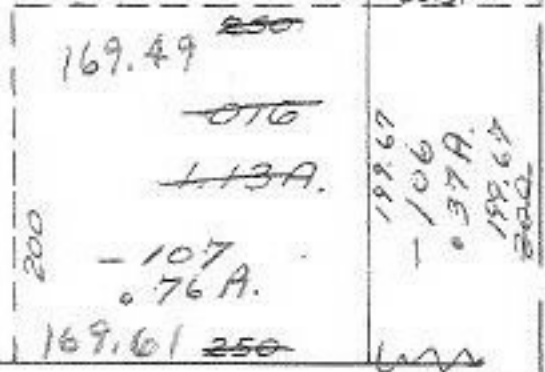 169.49 250
016
1.13A.
200
-107
.76 A.
169.61 250
199.67
-106
.37A.
199.67
200